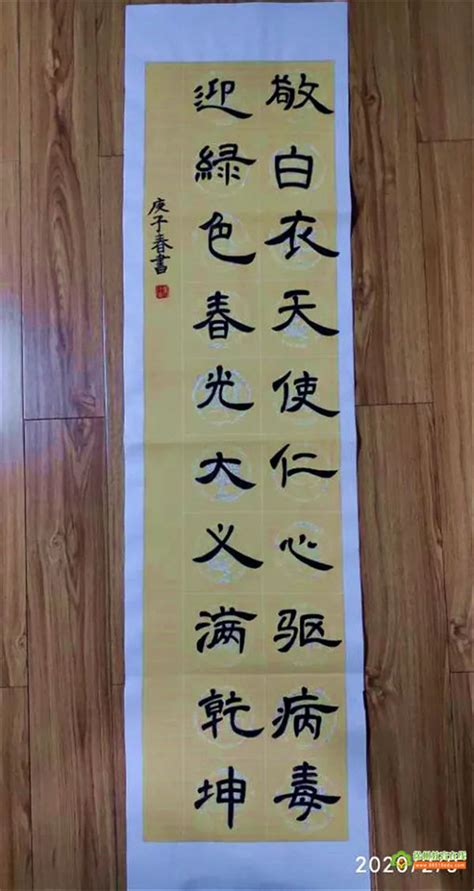 敬白衣天使仁心驱病毒
迎綠色春光大义满乾坤
庚子春書